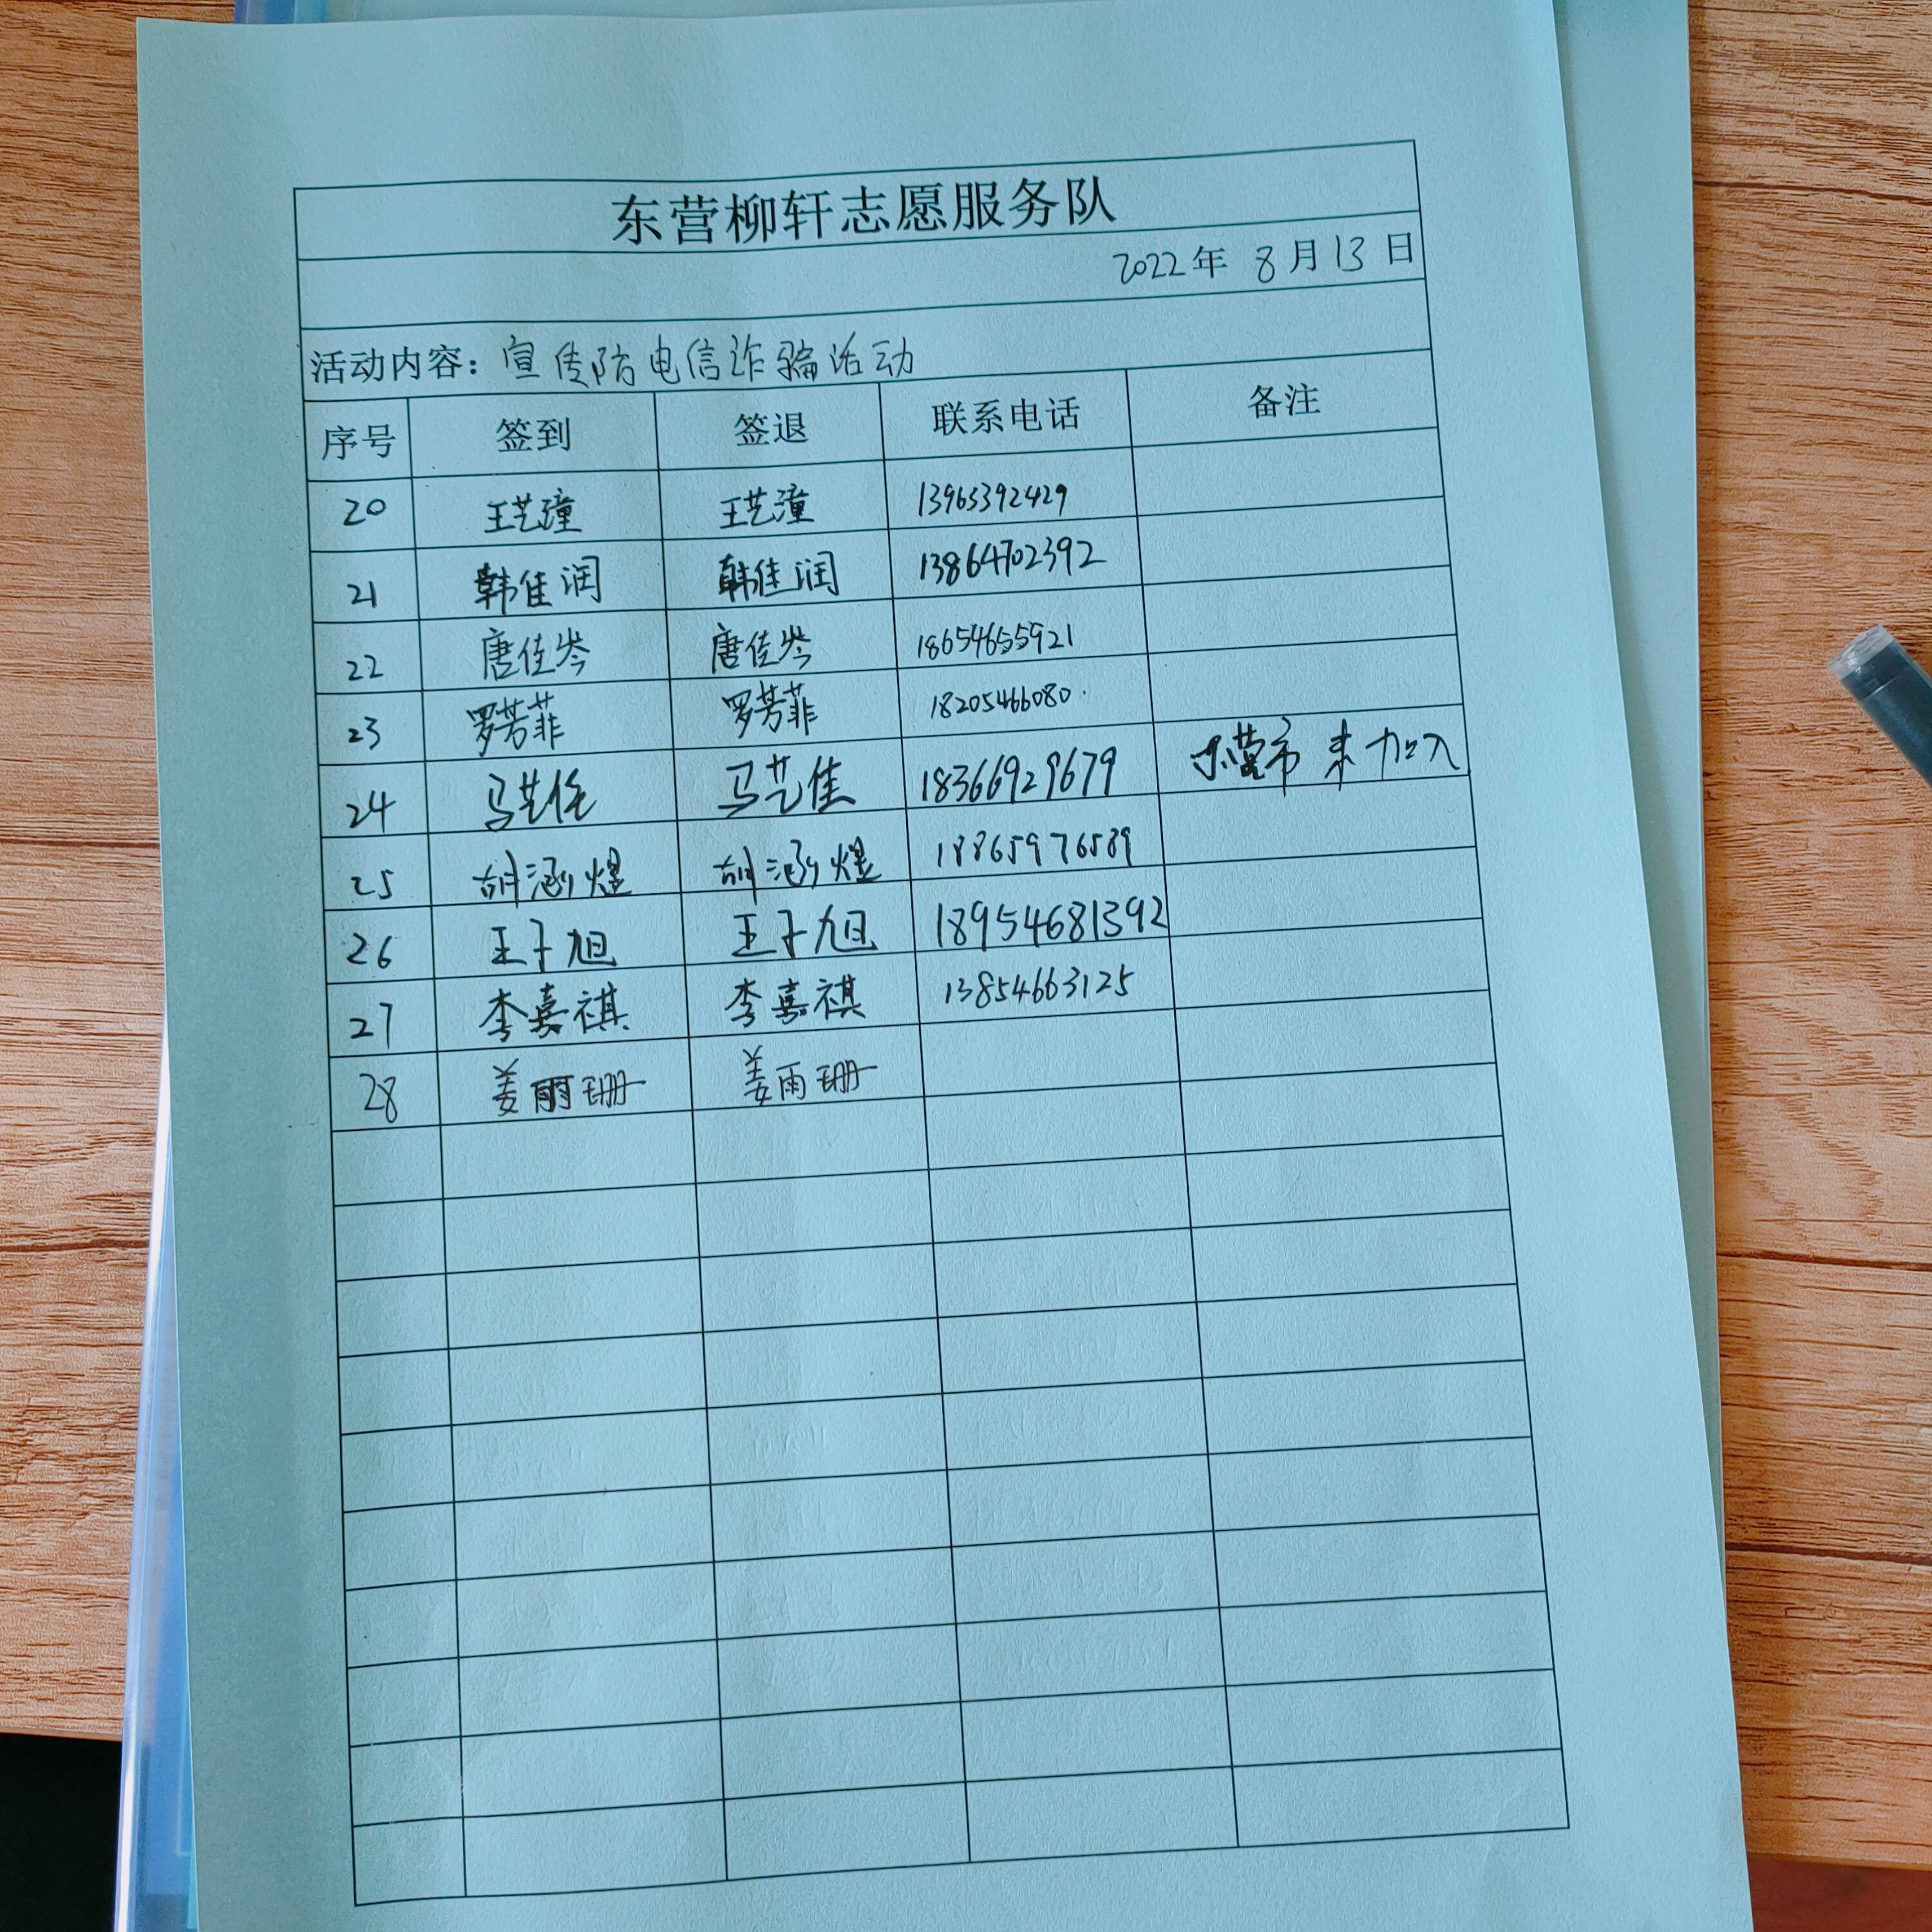 东营柳轩志愿服务队
2022年 8月13日
活动内容：宣传防电信诈骗活动
序号 签到 签退 联系电话 备注
20 王艺潼 王艺潼 13963392429
21 韩佳润 韩佳润 13864702392
22 唐佳岑 唐佳岑 18654655921
23 罗芳菲 罗芳菲 18205466080
24 马艺佳 马艺佳 18366929679 东营市 未加入
25 胡涵煜 胡涵煜 18865976589
26 王子旭 王子旭 18954681392
27 李嘉祺 李嘉祺 13854663125
28 姜雨珊 姜雨珊